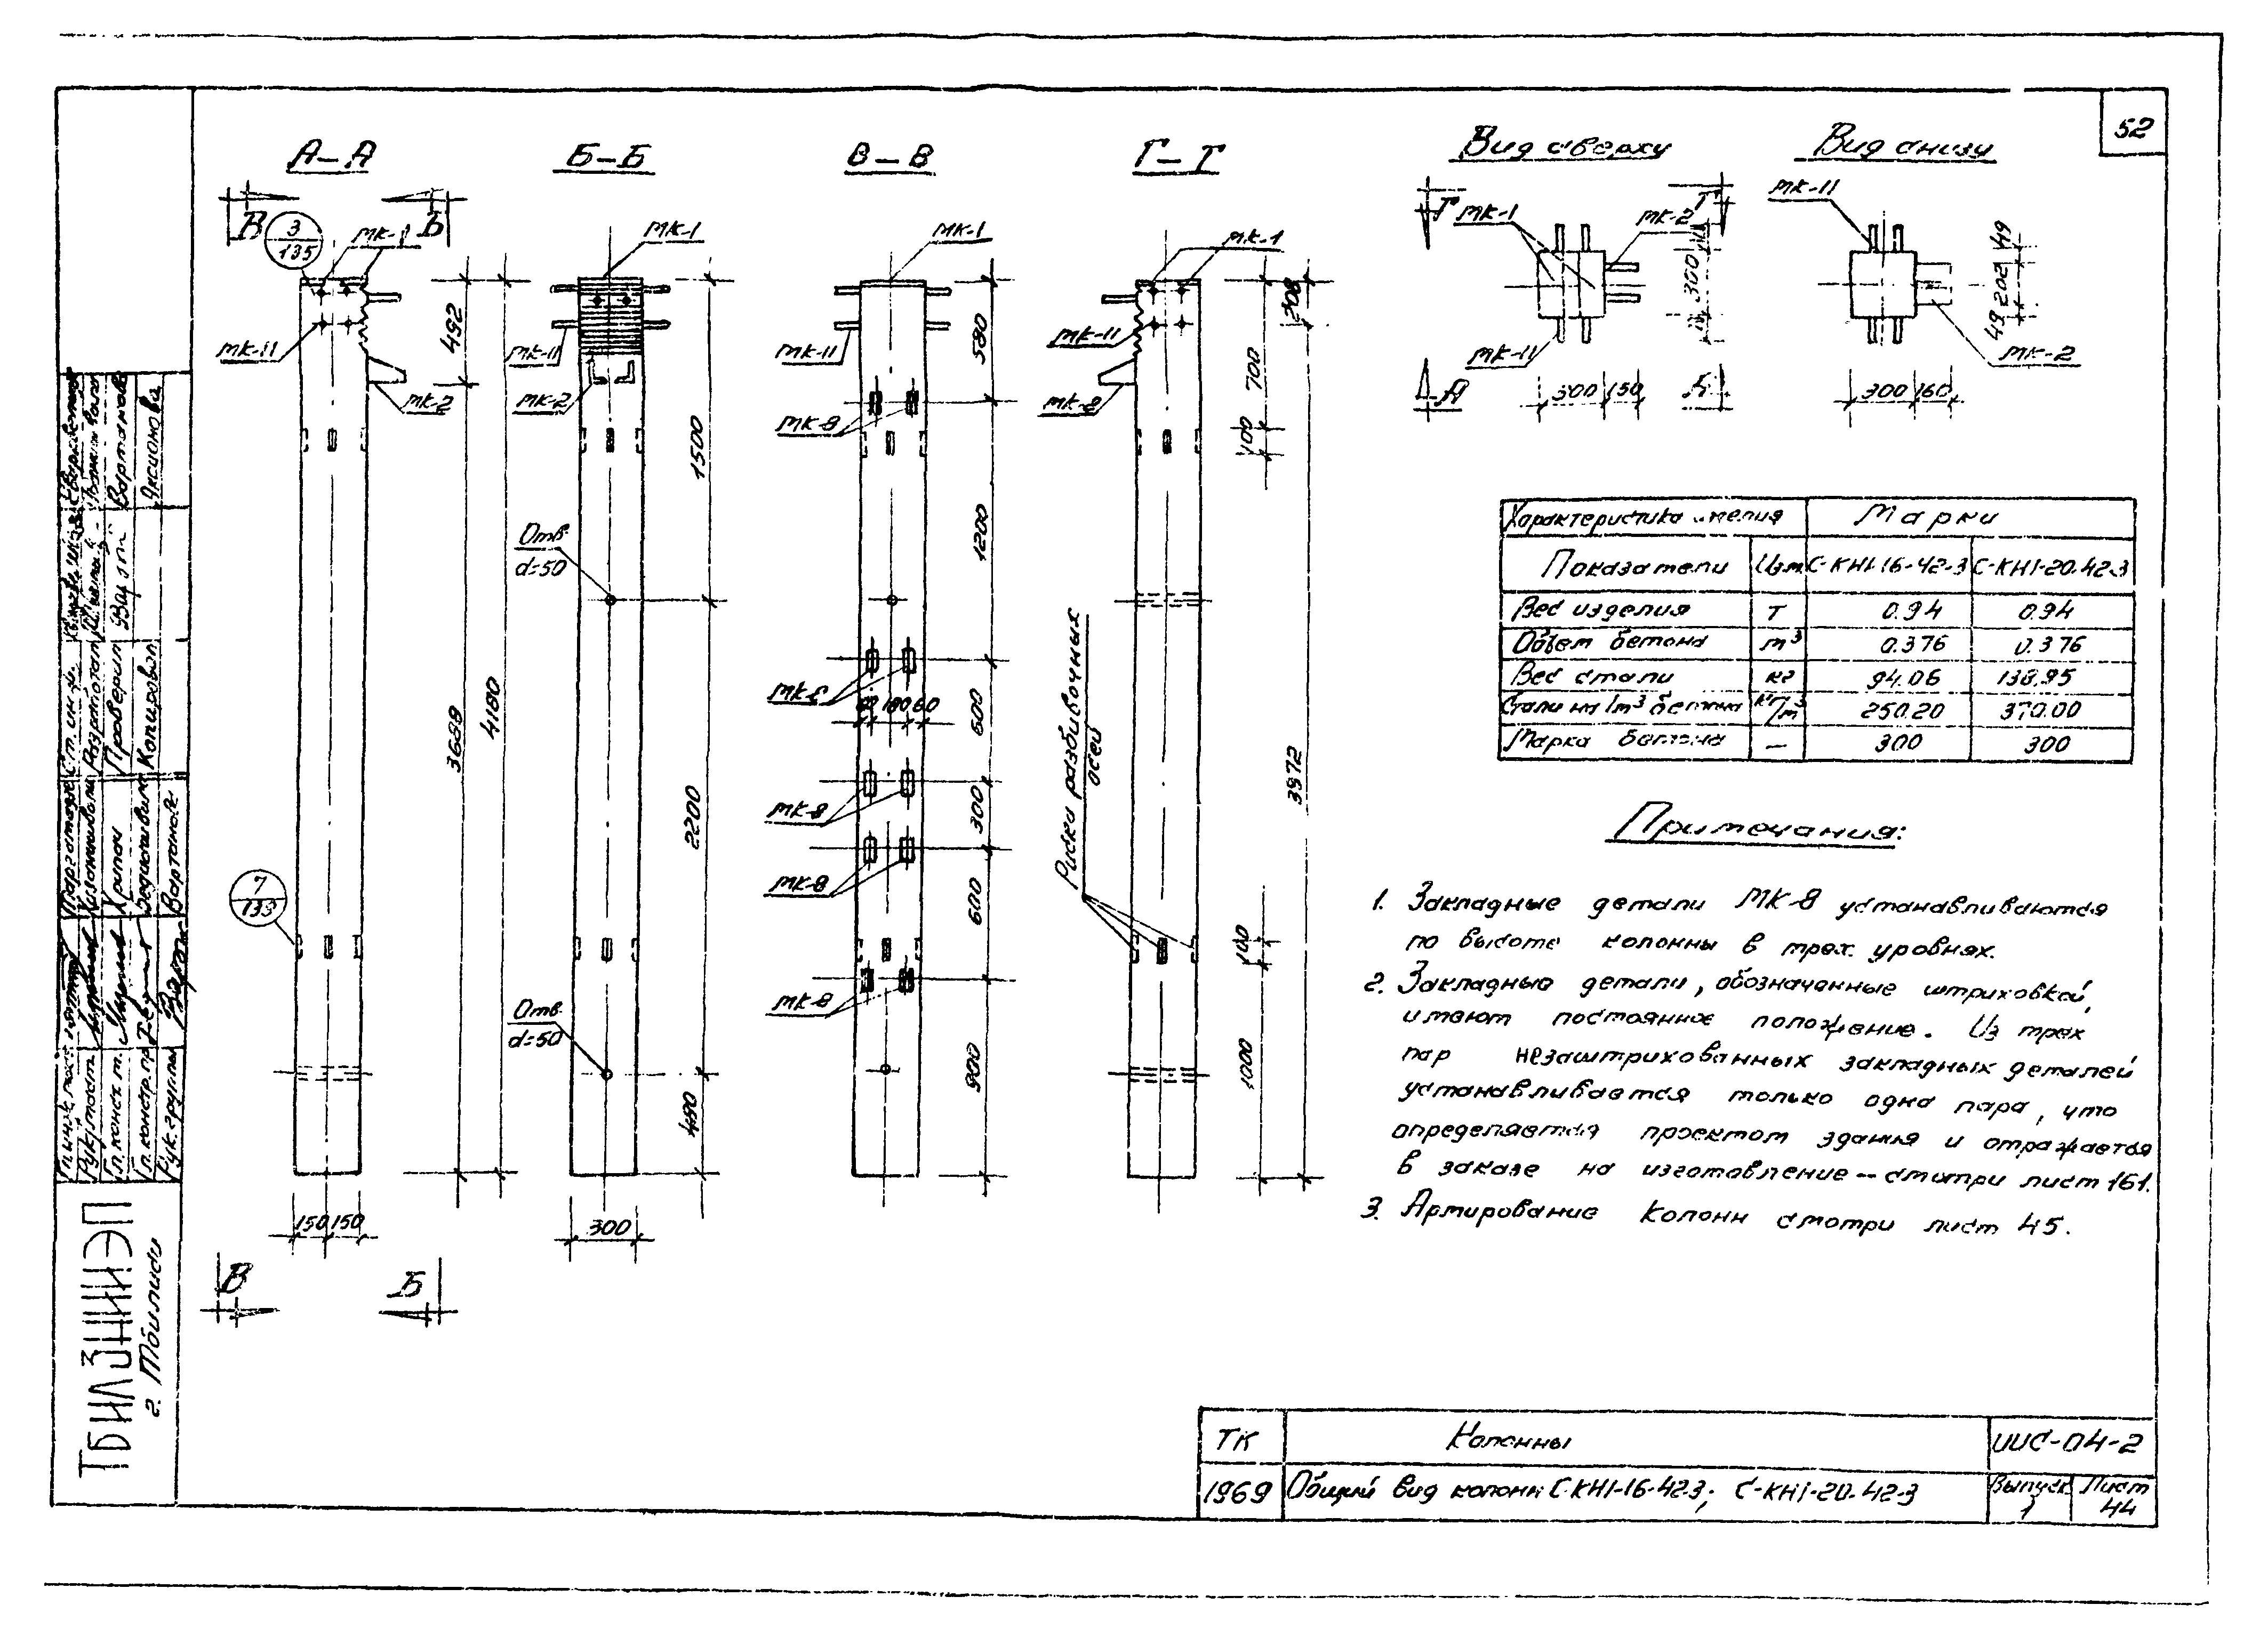 52
А–А
Б–Б
В–В
Г–Г
Вид сверху
Вид снизу
В
3
135
МК-1
Б
МК-11
МК-2
492
3688
4180
7
133
150 150
В
Б
МК-1
МК-11
МК-2
Отв.
d=50
Отв.
d=50
1500
2200
480
300
МК-1
МК-11
МК-8
МК-8
60 180 60
МК-8
МК-8
МК-8
580
1200
600
300
600
900
МК-1
МК-11
МК-2
Риски разбивочных
осей
208
700
100
3972
100
1000
Г
МК-1
МК-2
Г
300
МК-11
А
300 150
А
МК-11
49
202
49
МК-2
300 160
Характеристика изделия Марки
Показатели Изм С-КН1-16-42-3 С-КН1-20-42-3
Вес изделия Т 0.94 0.94
Объем бетона m³ 0.376 0.376
Вес стали кг 94.06 138.95
Стали на 1m³ бетона кг/m³ 250.20 370.00
Марка бетона – 300 300
Примечания:
1. Закладные детали МК-8 устанавливаются
по высоте колонны в трех уровнях.
2. Закладные детали, обозначенные штриховкой,
имеют постоянное положение. Из трех
пар незаштрихованных закладных деталей
устанавливается только одна пара, что
определяется проектом здания и отражается
в заказе на изготовление – смотри лист 161.
3. Армирование колонн смотри лист 45.
ТК Колонны ИИС-04-2
1969 Общий вид колонн С-КН1-16-42-3; С-КН1-20-42-3 Выпуск 1 Лист 44
ТБИЛЗНИИЭП
г. Тбилиси
Рук. группы Вартанова
Гл. констр. пр.
Ст. инж.
Разработал
Проверил Вартанова
Копировал Аксионова